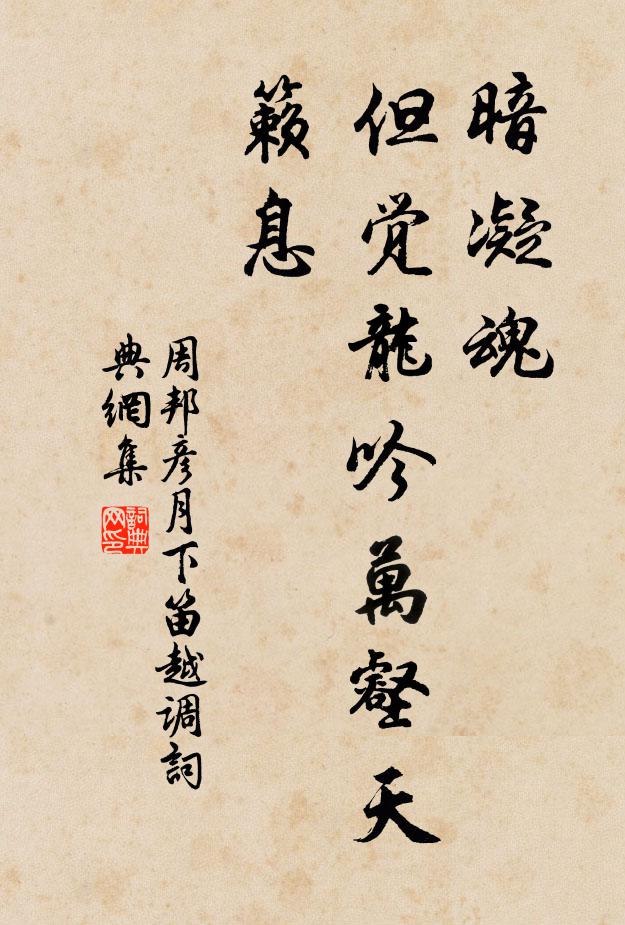 暗凝魂
但觉龍吟萬壑天
籟息
周邦彦月下笛越调詞
典網集
詞典网印